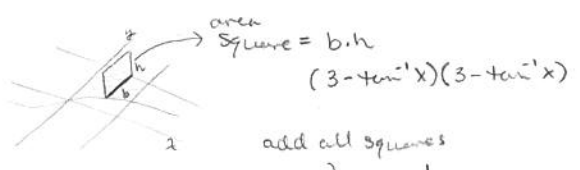 area
square = b.h
(3-tan⁻¹x)(3-tan⁻¹x)
y
h
b
add all squares